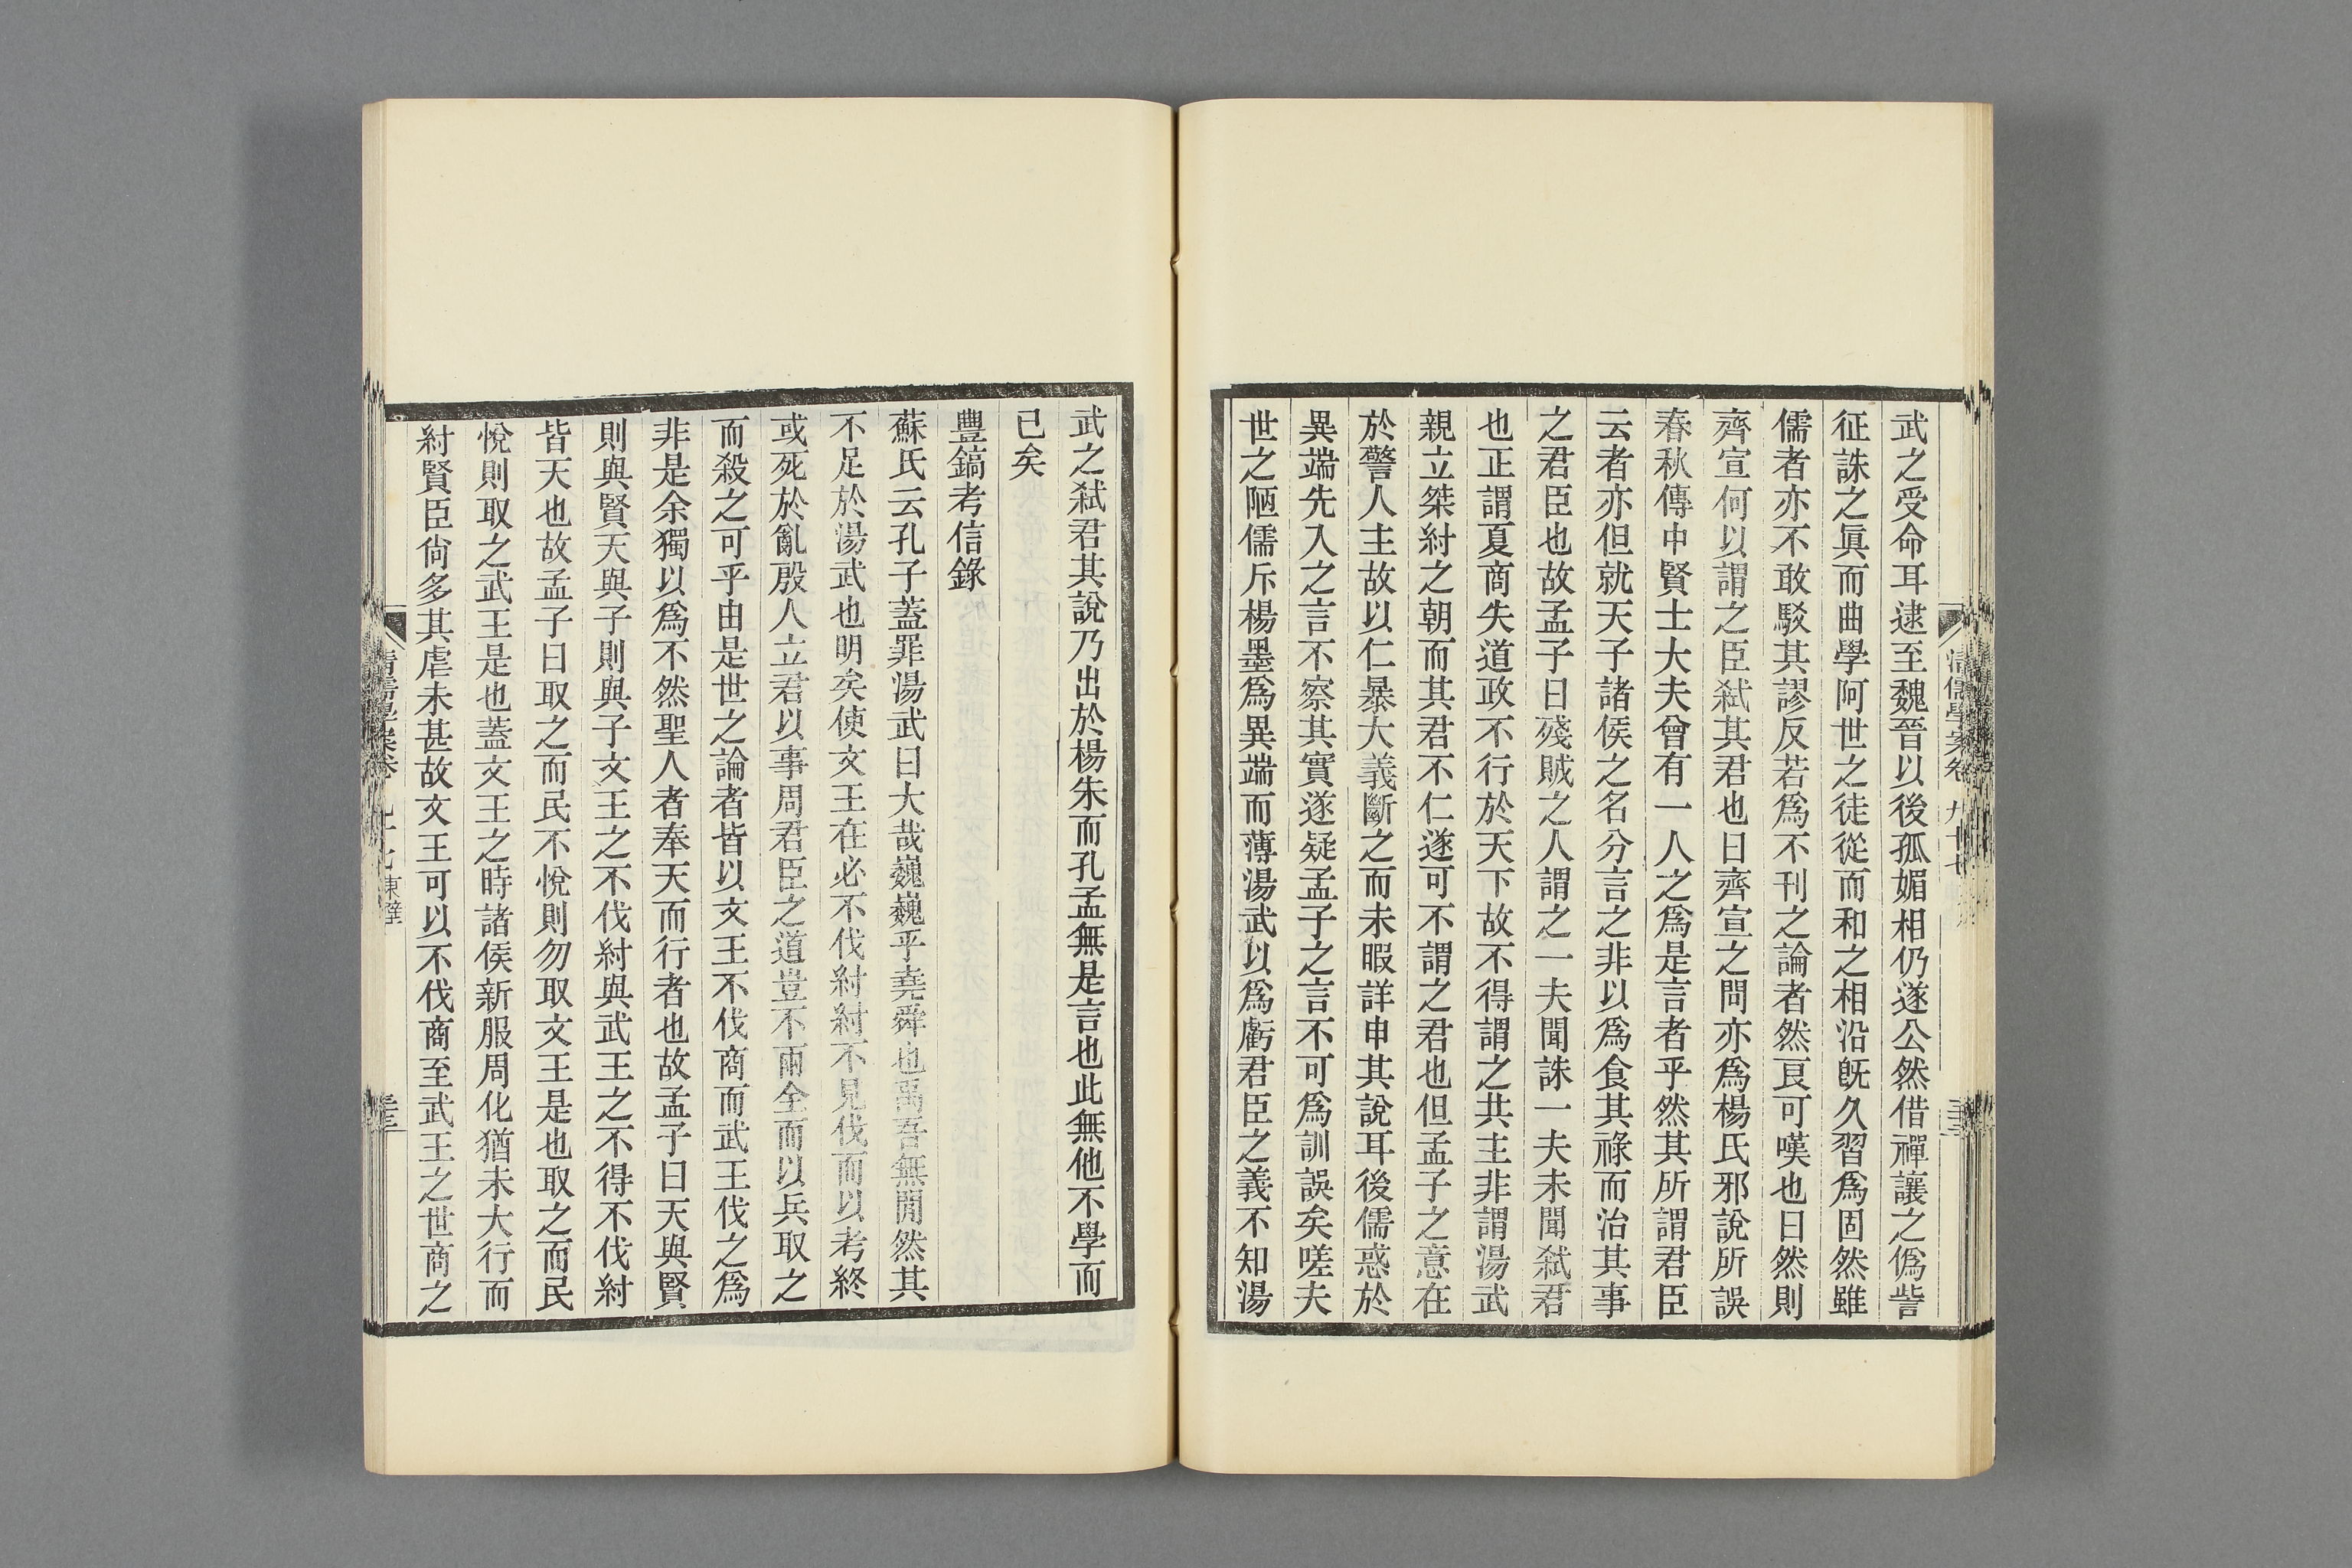 武之受命耳逮至魏晉以後孤媚相仍遂公然借禪讓之僞訾
征誅之眞而曲學阿世之徒從而和之相沿旣久習爲固然雖
儒者亦不敢駁其謬反若爲不刊之論者然良可嘆也曰然則
齊宣何以謂之臣弑其君也曰齊宣之問亦爲楊氏邪說所誤
春秋傳中賢士大夫曾有一人之爲是言者乎然其所謂君臣
云者亦但就天子諸侯之名分言之非以爲食其祿而治其事
之君臣也故孟子曰殘賊之人謂之一夫聞誅一夫未聞弑君
也正謂夏商失道政不行於天下故不得謂之共主非謂湯武
親立桀紂之朝而其君不仁遂可不謂之君也但孟子之意在
於警人主故以仁暴大義斷之而未暇詳申其說耳後儒惑於
異端先入之言不察其實遂疑孟子之言不可爲訓誤矣嗟夫
世之陋儒斥楊墨爲異端而薄湯武以爲虧君臣之義不知湯
武之弑君其說乃出於楊朱而孔孟無是言也此無他不學而
已矣
豐鎬考信錄
蘇氏云孔子蓋罪湯武曰大哉巍巍乎堯舜也禹吾無閒然其
不足於湯武也明矣使文王在必不伐紂紂不見伐而以考終
或死於亂殷人立君以事周君臣之道豈不兩全而以兵取之
而殺之可乎由是世之論者皆以文王不伐商而武王伐之爲
非是余獨以爲不然聖人者奉天而行者也故孟子曰天與賢
則與賢天與子則與子文王之不伐紂與武王之不得不伐紂
皆天也故孟子曰取之而民不悅則勿取文王是也取之而民
悅則取之武王是也蓋文王之時諸侯新服周化猶未大行而
紂賢臣尙多其虐未甚故文王可以不伐商至武王之世商之
清儒學案卷九十七東壁